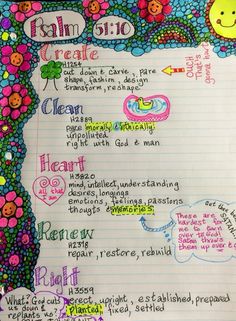 Psalm 51:10
Create
H1254
cut down & carve, pare
shape, fashion, design
transform, reshape
OUCH
That's
gonna hurt
Clean
H2889
pure morally & ethically
unpolluted
right with God & man
Heart
all that I am
H3820
mind, intellect, understanding
desires, longings
emotions, feelings, passions
thougts & memories
These are
hardest for
me to turn
over to God!
Satan throws
them up over &
Renew
H2318
repair, restore, rebuild
Right
H3559
erect, upright, established, prepared
Planted, fixed, settled
What? God cuts
us down &
replants us